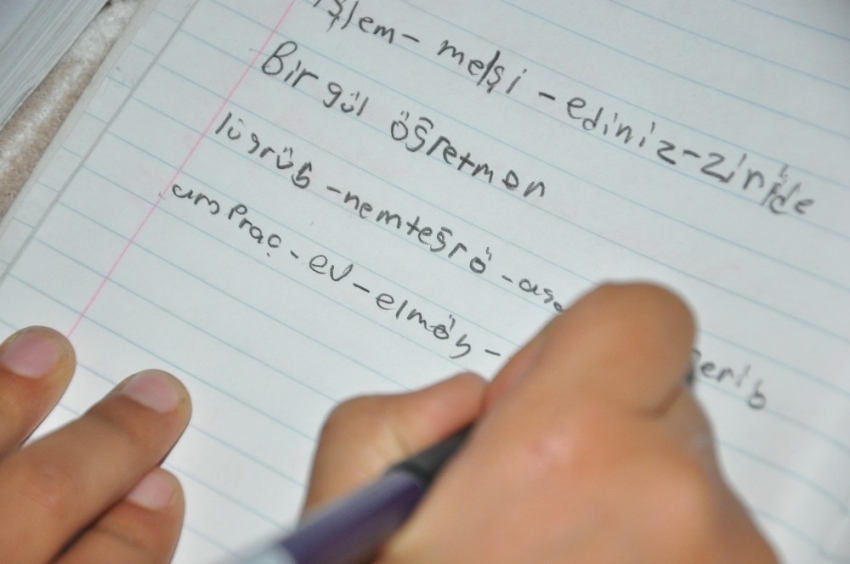 işlem- melşi - ediniz-zinide
Bir gül öğretmen
lügrüb -nemteğrö -
ampraç - ev - elmöb -